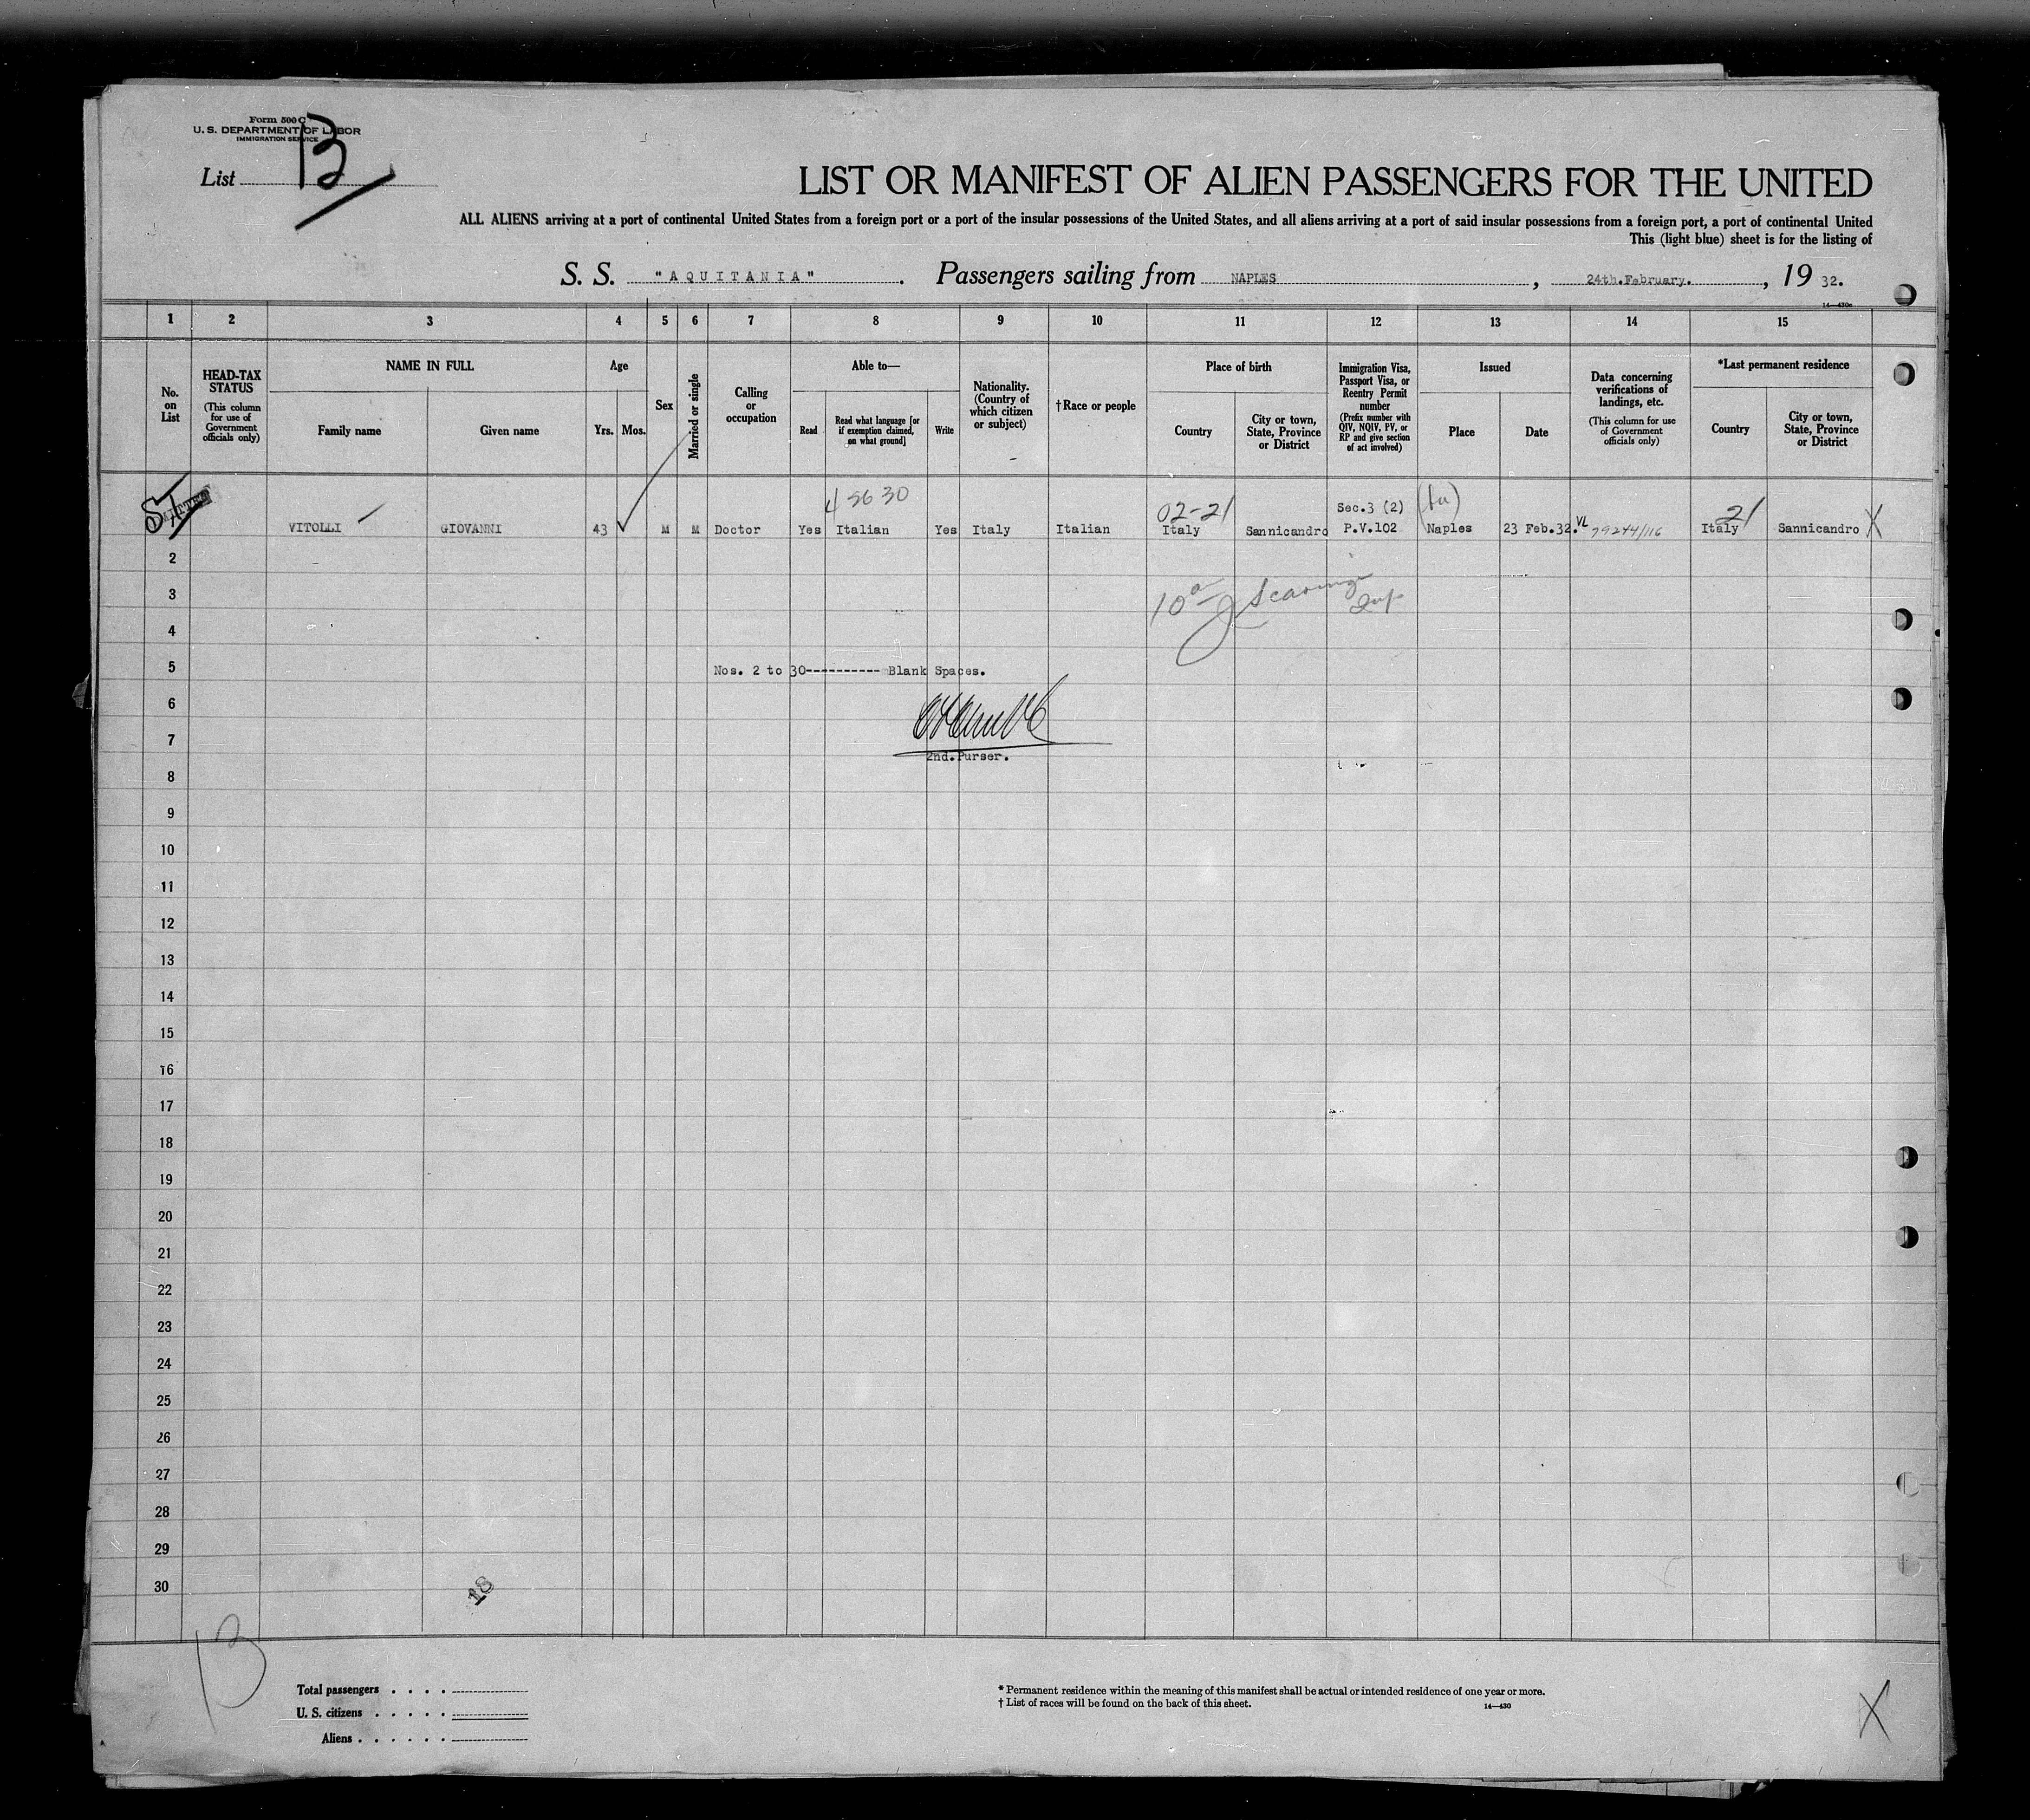 Form 500 C
U. S. DEPARTMENT OF LABOR
IMMIGRATION SERVICE
List 13
LIST OR MANIFEST OF ALIEN PASSENGERS FOR THE UNITED
ALL ALIENS arriving at a port of continental United States from a foreign port or a port of the insular possessions of the United States, and all aliens arriving at a port of said insular possessions from a foreign port, a port of continental United
This (light blue) sheet is for the listing of
S. S. "AQUITANIA". Passengers sailing from NAPLES, 24th.February., 19 32.
14—430a
1 2 3 4 5 6 7 8 9 10 11 12 13 14 15
No. on List
HEAD-TAX STATUS (This column for use of Government officials only)
NAME IN FULL
Family name
Given name
Age
Yrs. Mos.
Sex
Married or single
Calling or occupation
Able to—
Read
Read what language [or if exemption claimed, on what ground]
Write
Nationality. (Country of which citizen or subject)
†Race or people
Place of birth
Country
City or town, State, Province or District
Immigration Visa, Passport Visa, or Reentry Permit number (Prefix number with QIV, NQIV, PV, or RP and give section of act involved)
Issued
Place
Date
Data concerning verifications of landings, etc. (This column for use of Government officials only)
*Last permanent residence
Country
City or town, State, Province or District
02-21 Sec.3 (2) 21
VITOLLI GIOVANNI 43 M M Doctor Yes Italian Yes Italy Italian Italy Sannicandro P.V.102 Naples 23 Feb.32. Italy Sannicandro X
2
3
4
5 Nos. 2 to 30---------- Blank Spaces.
6
7
2nd.Purser.
8
9
10
11
12
13
14
15
16
17
18
19
20
21
22
23
24
25
26
27
28
29
30
18
13
Total passengers . . . .
U. S. citizens . . . . .
Aliens . . . . . .
* Permanent residence within the meaning of this manifest shall be actual or intended residence of one year or more.
† List of races will be found on the back of this sheet.
14—430
X